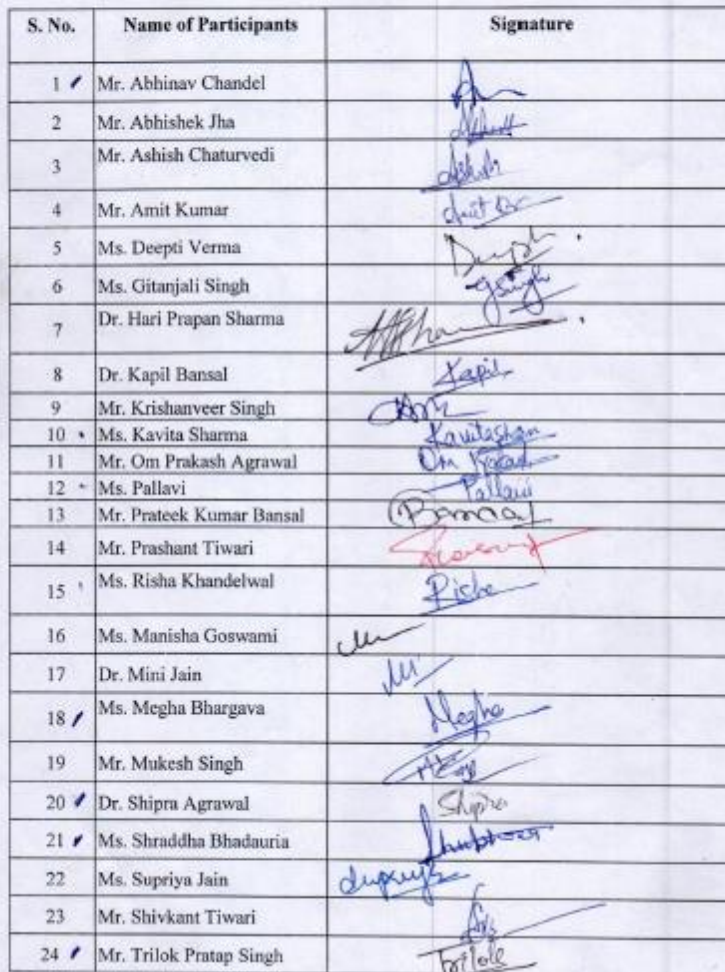 S. No. Name of Participants Signature
1 Mr. Abhinav Chandel
2 Mr. Abhishek Jha
3 Mr. Ashish Chaturvedi Ashish
4 Mr. Amit Kumar Amit
5 Ms. Deepti Verma
6 Ms. Gitanjali Singh gsingh
7 Dr. Hari Prapan Sharma
8 Dr. Kapil Bansal Kapil
9 Mr. Krishanveer Singh
10 Ms. Kavita Sharma
11 Mr. Om Prakash Agrawal Om
12 Ms. Pallavi Pallavi
13 Mr. Prateek Kumar Bansal Bansal
14 Mr. Prashant Tiwari
15 Ms. Risha Khandelwal Risha
16 Ms. Manisha Goswami
17 Dr. Mini Jain
18 Ms. Megha Bhargava Megha
19 Mr. Mukesh Singh
20 Dr. Shipra Agrawal Shipra
21 Ms. Shraddha Bhadauria
22 Ms. Supriya Jain
23 Mr. Shivkant Tiwari
24 Mr. Trilok Pratap Singh Trilok